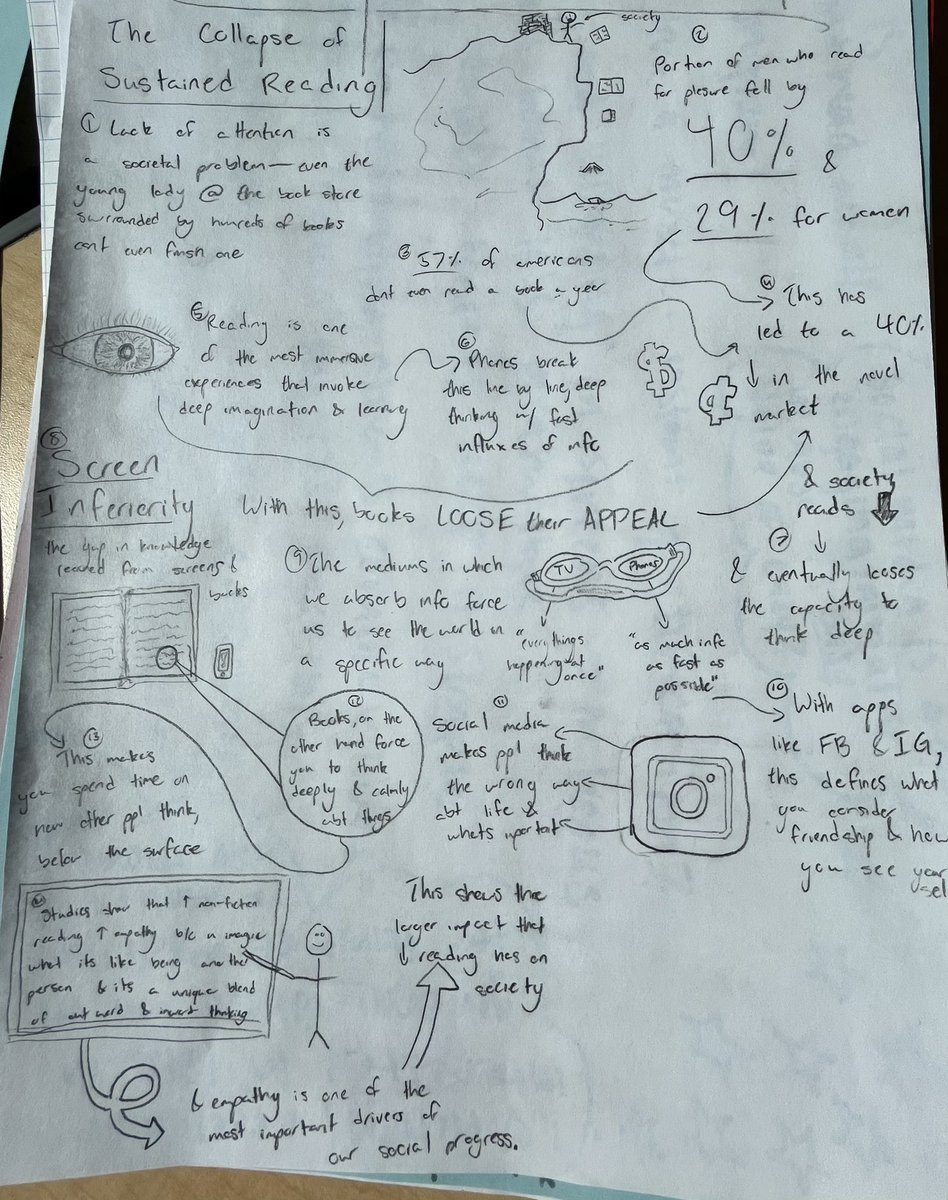 The Collapse of
Sustained Reading
society
① Lack of attention is
a societal problem— even the
young lady @ the book store
surrounded by hunreds of books
cant even finish one
②
Portion of men who read
for plesure fell by
40%
&
29% for women
③ 57% of americans
dont even read a book a year
④ This has
led to a 40%
↓ in the novel
market
⑤ Reading is one
of the most immersive
experiences that invoke
deep imagination & learning
⑥ Phones break
this line by line, deep
thinking w/ fast
influxes of info
With this, books LOOSE their APPEAL
& society
reads ↓
⑦ ↓
& eventually looses
the capacity to
think deep
⑧
Screen
Inferiority
the gap in knowledge
from screens &
books
⑨ The mediums in which
we absorb info force
us to see the world in
a specific way
TV
Phones
"everythings
happening at
once"
"as much info
as fast as
possible"
⑩ With apps
like FB & IG,
this defines what
you consider
friendship & how
you see your
self
⑪
Social media
makes ppl think
the wrong way
abt life &
whats important
⑫
Books, on the
other hand force
you to think
deeply & calmly
abt things
⑬
This makes
you spend time on
how other ppl think,
below the surface
Studies show that ↑ non-fiction
reading ↑ empathy b/c u imagie
what its like being another
person & its a unique blend
of outward & inward thinking
This shows the
larger impact that
↓ reading has on
society
& empathy is one of the
most important drivers of
our social progress.